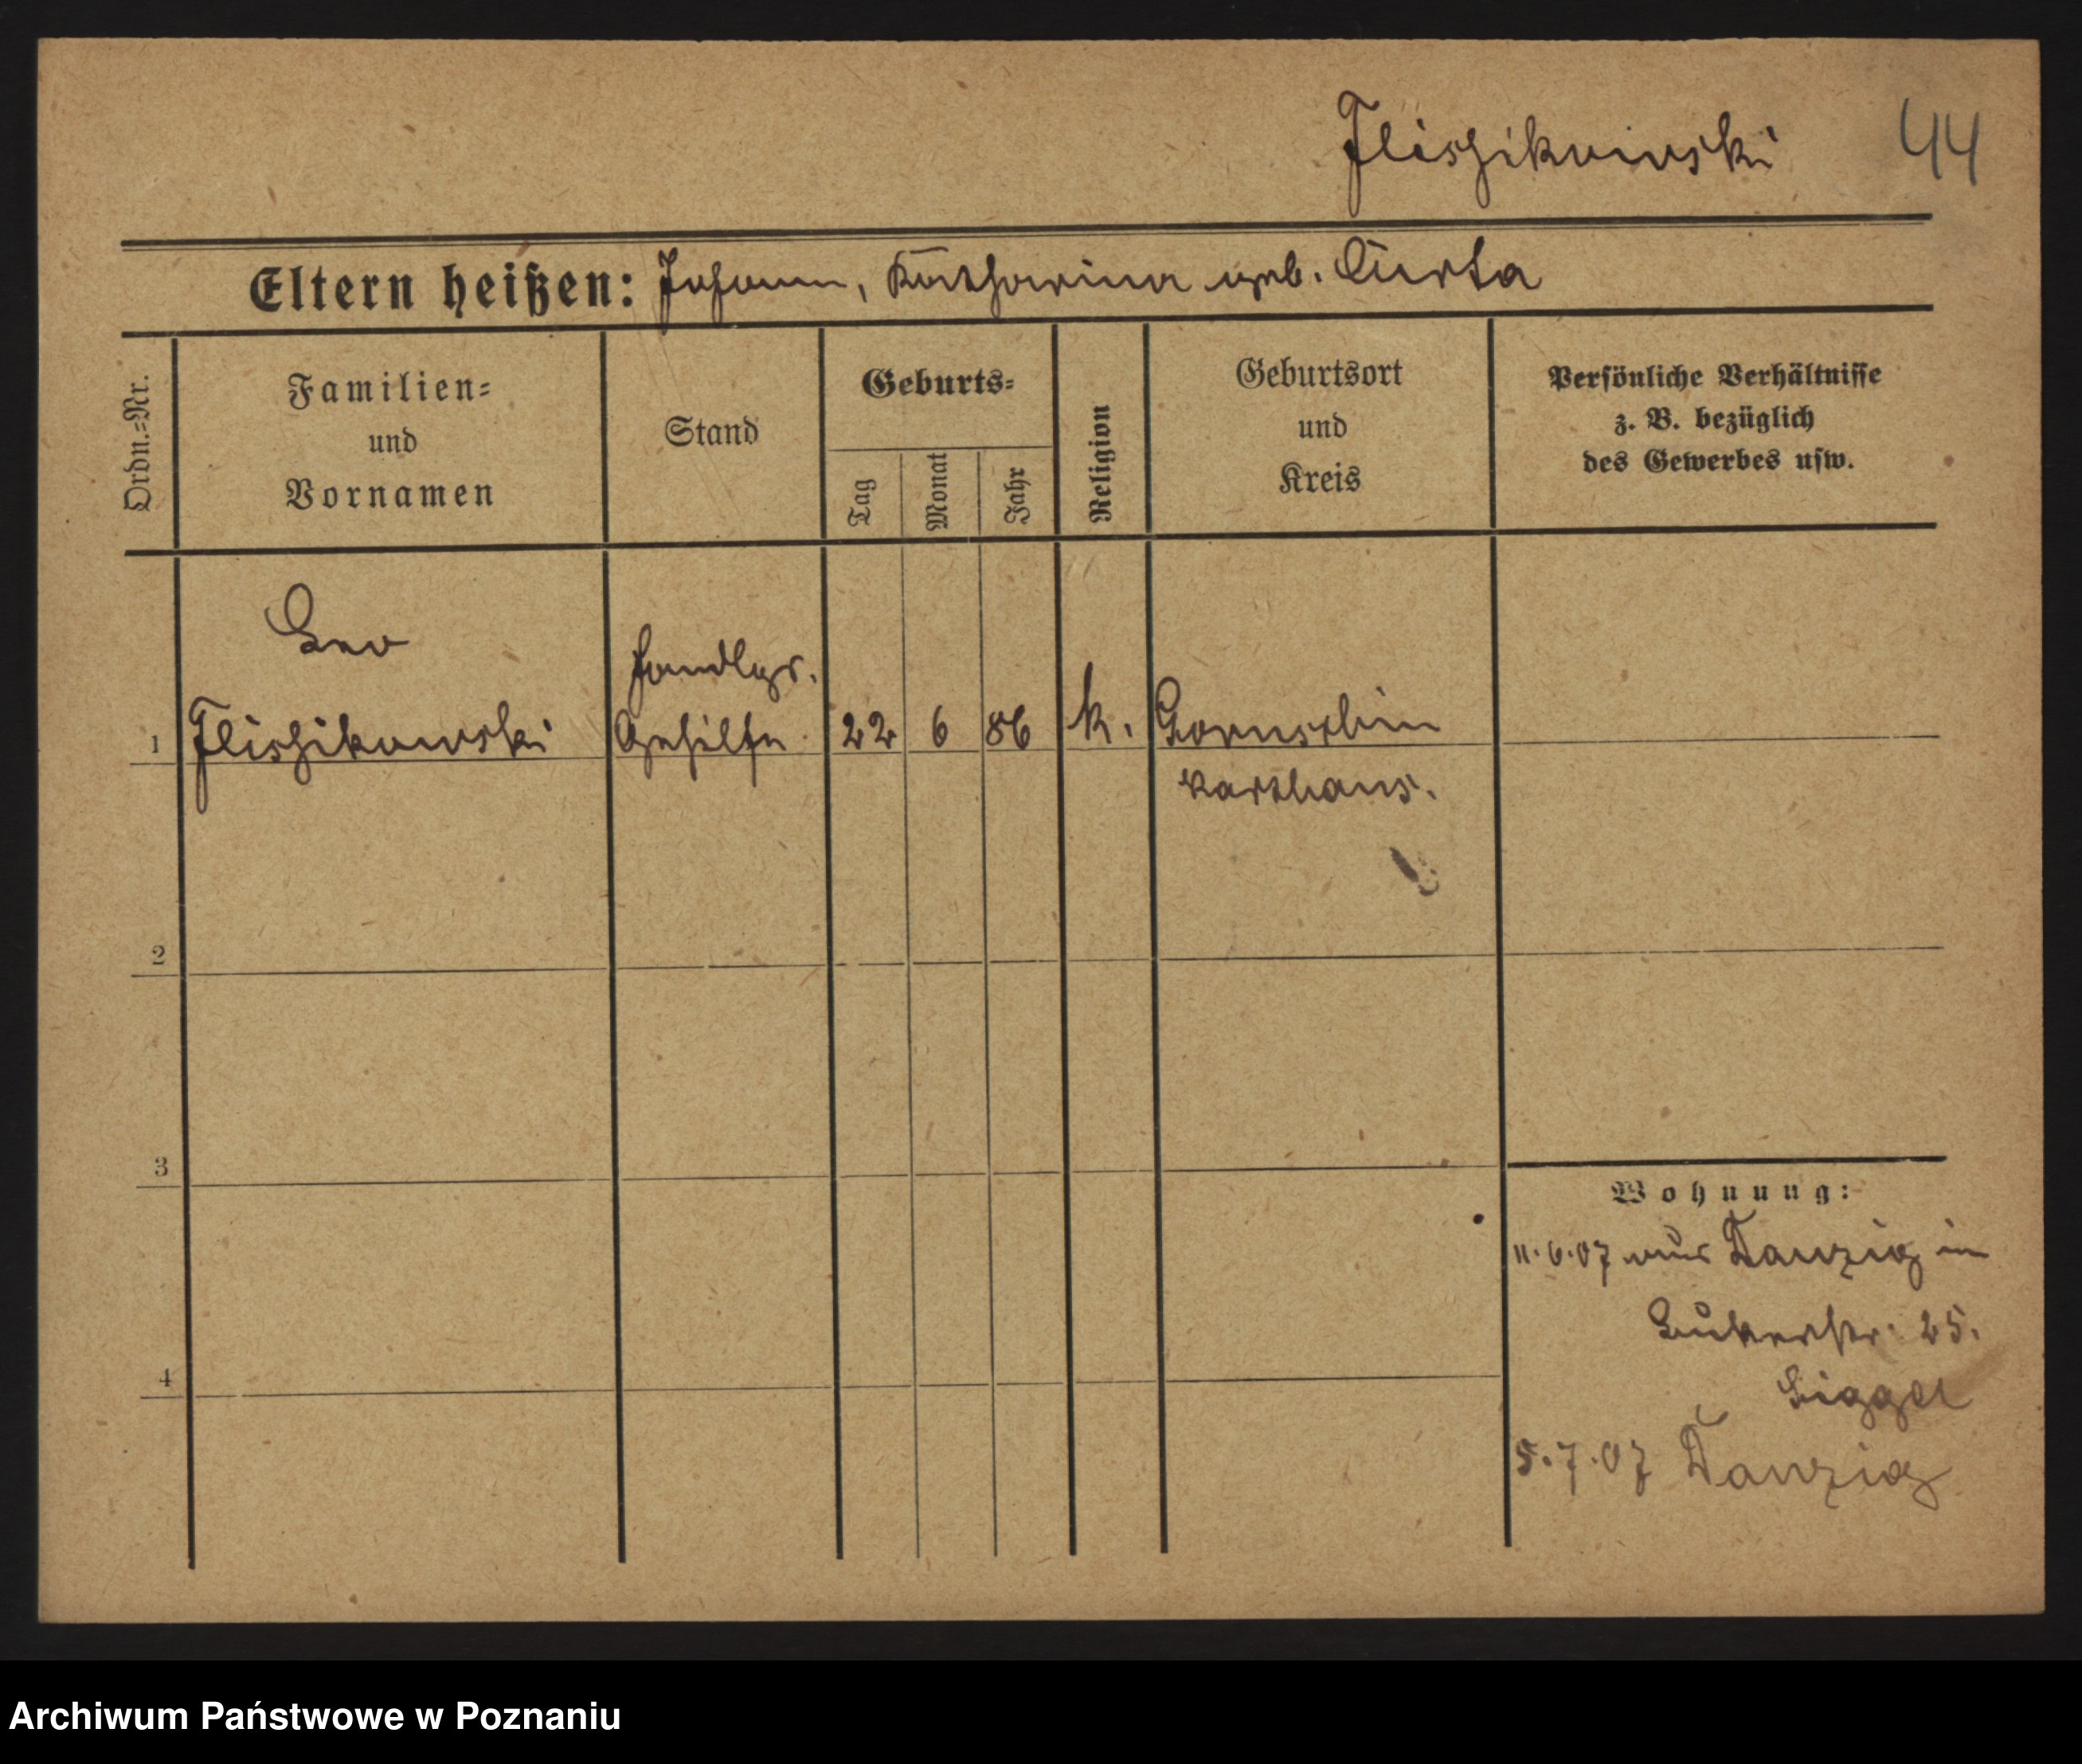 Fliszikowski 44
Eltern heißen: Johann, Katharina geb. Curta
Ordn.=Nr.
Familien=
und
Vornamen
Stand
Geburts=
Tag
Monat
Jahr
Religion
Geburtsort
und
Kreis
Persönliche Verhältnisse
z. B. bezüglich
des Gewerbes usw.
Leo
Handlgs.
1 Fliszikowski Gehilfe 22 6 86 k. Gorrenschin
Karthaus.
2
3
4
Wohnung:
11.6.07 aus Danzig in
25.
5.7.07 Danzig
Archiwum Państwowe w Poznaniu